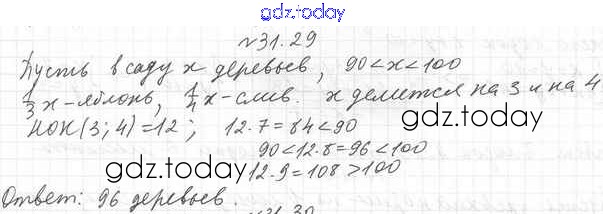 gdz.today
№31.29
Пусть в саду x деревьев, 90<x<100
1/3 x - яблонь, 1/4 x - слив. x делится на 3 и на 4
НОК(3;4)=12; 12·7=84<90
gdz.today
90<12·8=96<100
gdz.today
12·9=108>100
Ответ: 96 деревьев.
№31.30